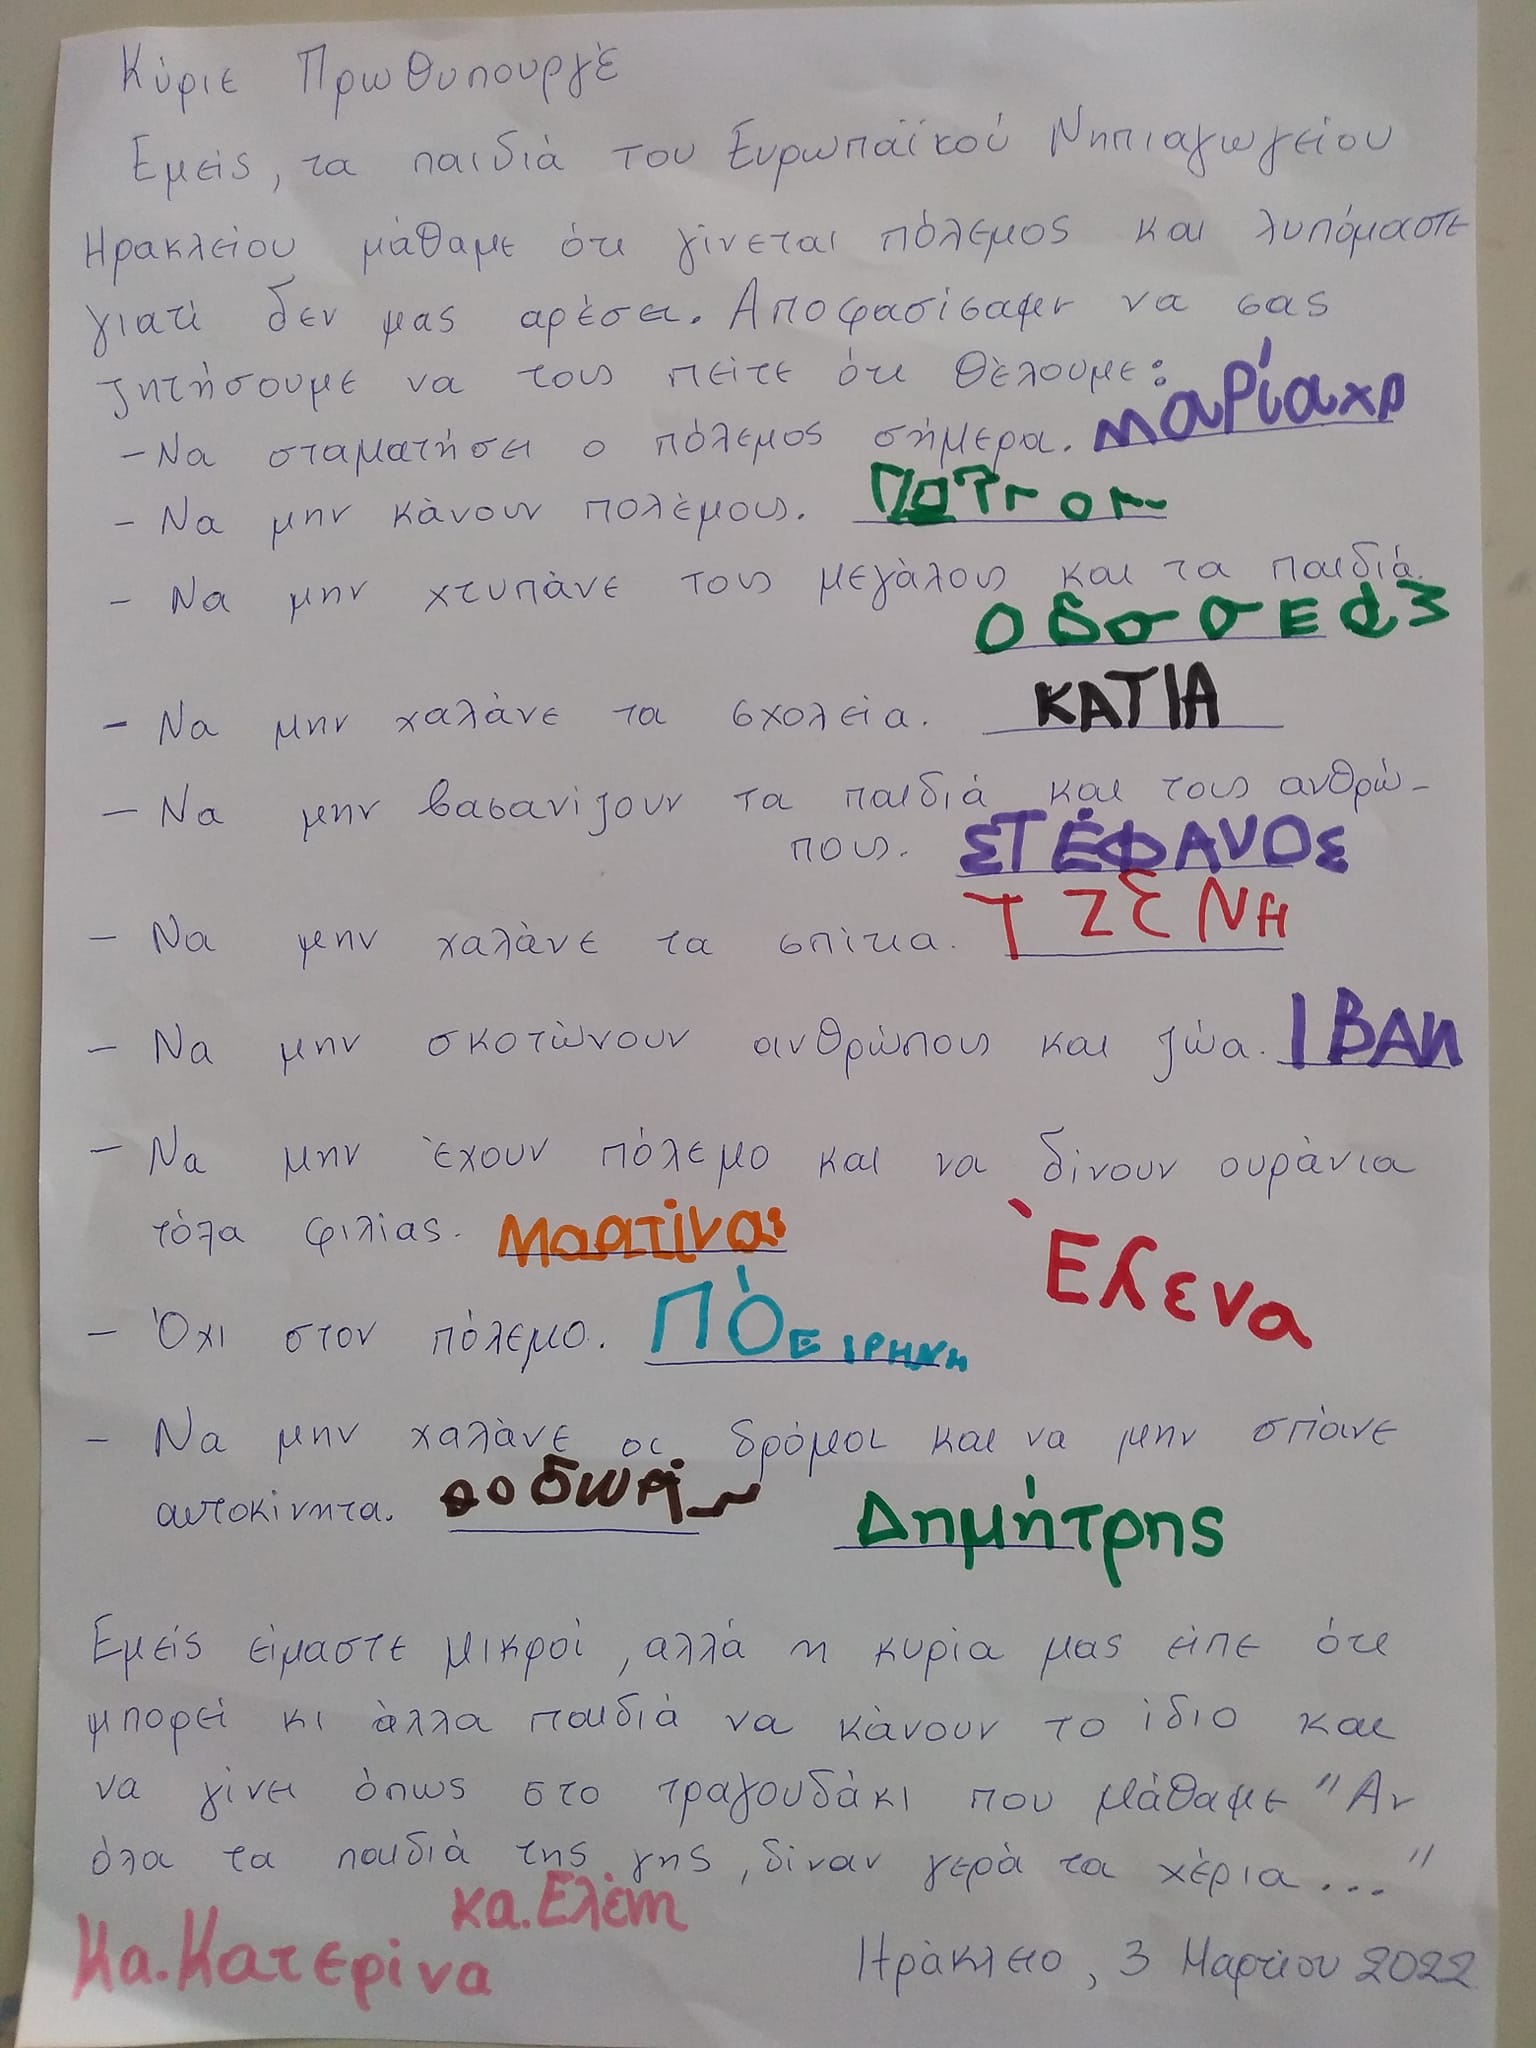 Κύριε Πρωθυπουργέ
Εμείς, τα παιδιά του Ευρωπαϊκού Νηπιαγωγείου
Ηρακλείου μάθαμε ότι γίνεται πόλεμος και λυπόμαστε
γιατί δεν μας αρέσει. Αποφασίσαμε να σας
ζητήσουμε να τους πείτε ότι θέλουμε:
- Να σταματήσει ο πόλεμος σήμερα. Μαρίαχρ
- Να μην κάνουν πολέμους.
- Να μην χτυπάνε τους μεγάλους και τα παιδιά.
- Να μην χαλάνε τα σχολεία. ΚΑΤΙΑ
- Να μην βασανίζουν τα παιδιά και τους ανθρώ-
πους. ΣΤΈΦΑΝΟΣ
- Να μην χαλάνε τα σπίτια. ΤΖΕΝΗ
- Να μην σκοτώνουν ανθρώπους και ζώα. ΙΒΑΝ
- Να μην έχουν πόλεμο και να δίνουν ουράνια
τόξα φιλίας. Μαρτίνα
Έλενα
- Όχι στον πόλεμο. ΠΌΕΙΡΗΝΗ
- Να μην χαλάνε οι δρόμοι και να μην σπάνε
αυτοκίνητα. Δημήτρης
Εμείς είμαστε μικροί, αλλά η κυρία μας είπε ότι
μπορεί κι άλλα παιδιά να κάνουν το ίδιο και
να γίνει όπως στο τραγουδάκι που μάθαμε "Αν
όλα τα παιδιά της γης, δίναν γερά τα χέρια..."
κα. Ελένη
Κα. Κατερίνα
Ηράκλειο, 3 Μαρτίου 2022